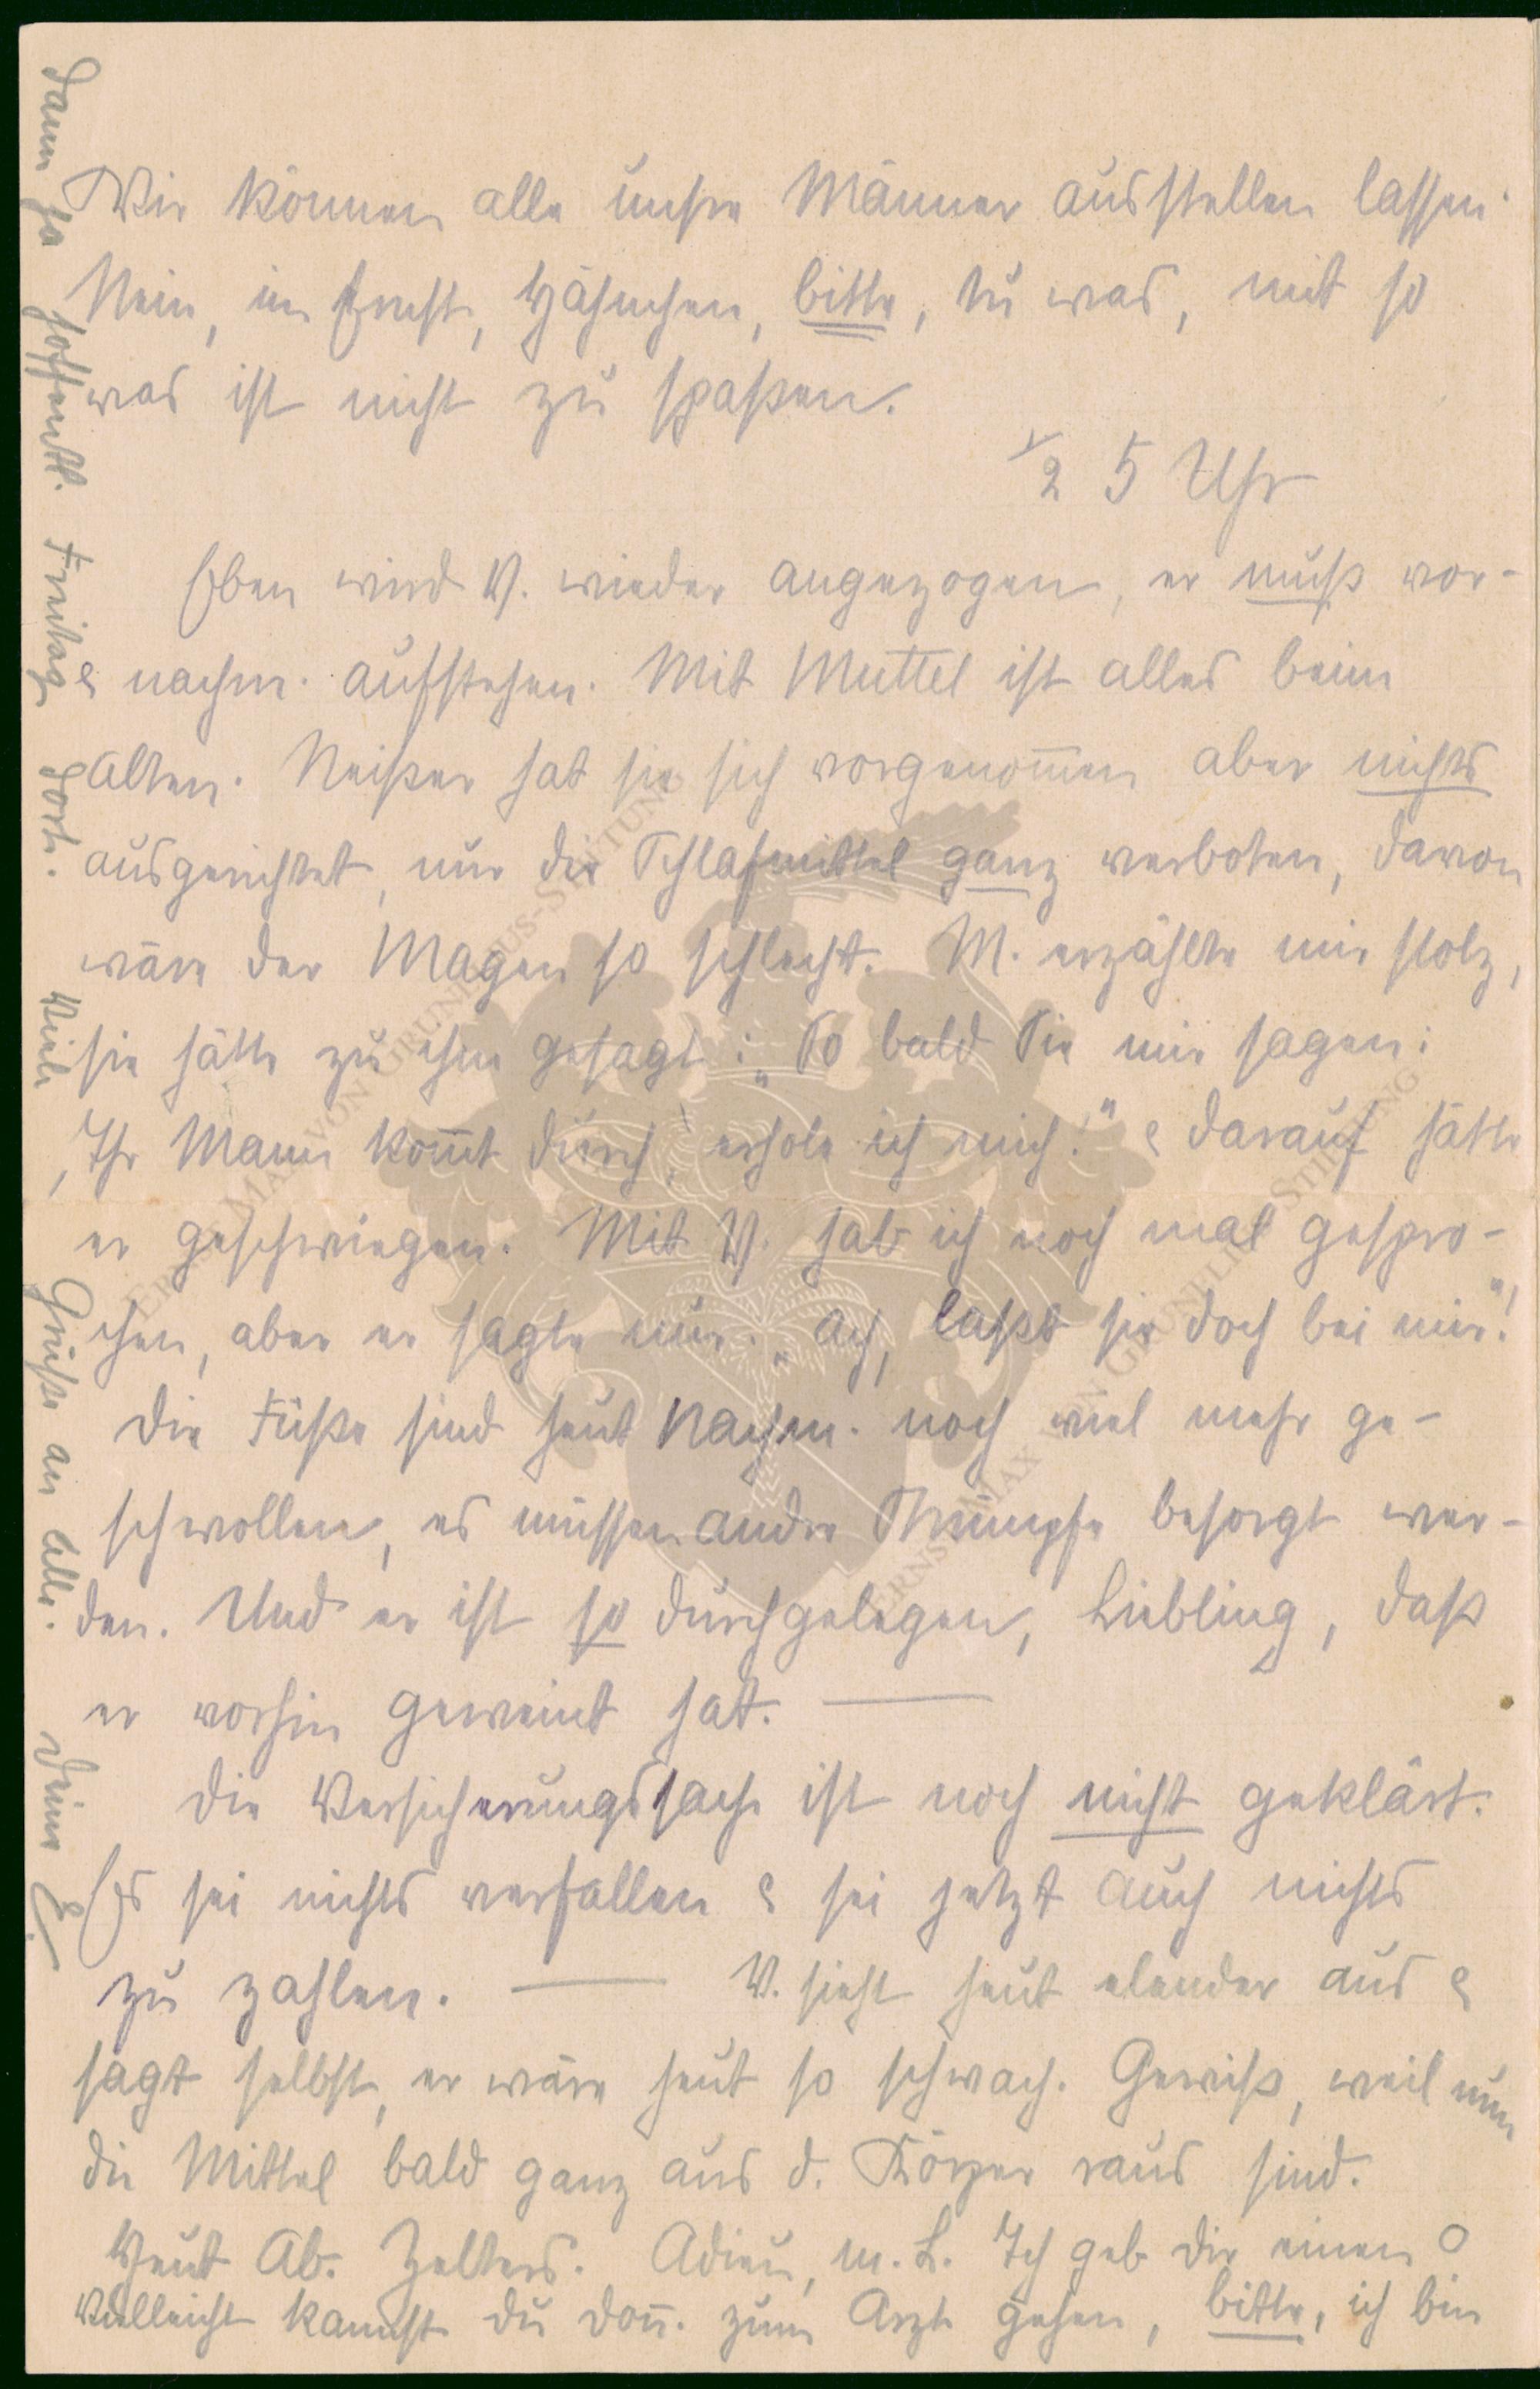 Wir können alle unsre Männer ausstellen lassen.
Nein, im Ernst, Häschen, bitte, tu was, mit so
was ist nicht zu spaßen.
1/2 5 Uhr
Eben wird V. wieder angezogen, er muß vor-
& nachm. aufstehen. Mit Muttel ist alles beim
Alten. Neißer hat sie sich vorgenom̅en aber nichts
ausgerichtet, nur die Schlafmittel ganz verboten, davon
wäre der Magen so schlecht. M. erzählte mir stolz,
sie hätte zu ihm gesagt: „So bald Sie mir sagen:
‚Ihr Mann kom̅t durch‘, erhole ich mich!“ & darauf hätte
er geschwiegen. Mit V. hab ich noch mal gespro-
chen, aber er sagte nur: „Ach, laßt sie doch bei mir“!
Die Füße sind heut Nachm. noch viel mehr ge-
schwollen, es müssen andre Strümpfe besorgt wer-
den. Und er ist so durchgelegen, Liebling, daß
er vorhin geweint hat. —
Die Versicherungssache ist noch nicht geklärt.
Es sei nichts verfallen & sei jetzt auch nichts
zu zahlen. — V. sieht heut elender aus &
sagt selbst, er wäre heut so schwach. Gewiß, weil nun
die Mittel bald ganz aus d. Körper raus sind.
Heut Ab. Zelters. Adieu, m. L. Ich geb dir einen O
Vielleicht kannst du don̅. zum Arzt gehen, bitte, ich bin
dann ja hoffentl. Freitag dort. Viele Grüße an Alle. Deine E.
ERNST MAX VON GRUNELIUS-STIFTUNG
ERNST MAX VON GRUNELIUS-STIFTUNG